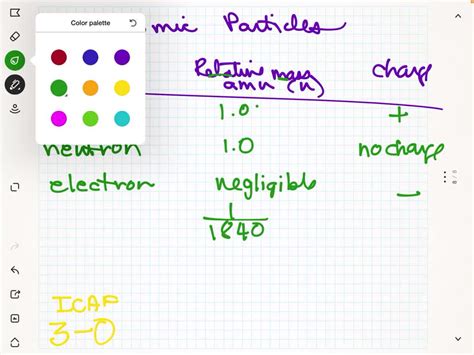 Color palette
mic Particles
Relative mass charge
amu (u)
1.0 +
neutron 1.0 no charge
electron negligible –
1
1840
ICAP
3-0